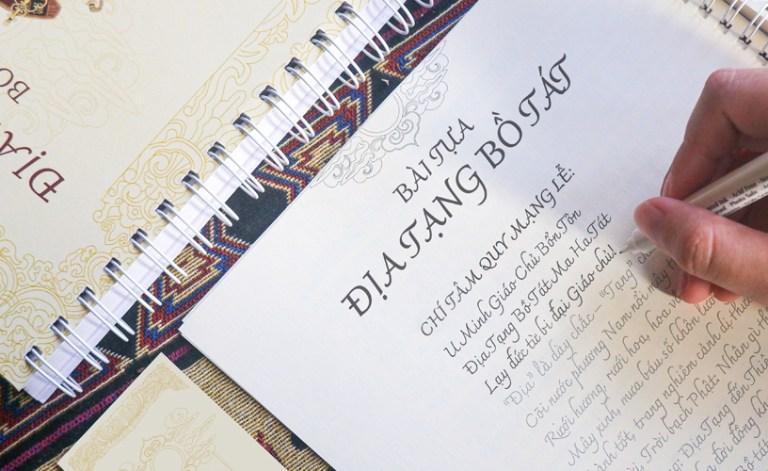 ĐỊA
BÀI TỰA
ĐỊA TẠNG BỒ TÁT
CHÍ TÂM QUY MẠNG LỄ:
U Minh Giáo Chủ Bổn Tôn
Địa Tạng Bồ Tát Ma Ha Tát
Lạy đức từ bi đại Giáo chủ!
"Địa" là dày chắc - "Tạng"
Cõi nước phương Nam nổi mây
Rưới hương, rưới hoa, hoa
Mây xinh, mưa báu số khôn
lành tốt, trang nghiêm cảnh dị
Trời bạch Phật: Nhân gì
Địa Tạng đến